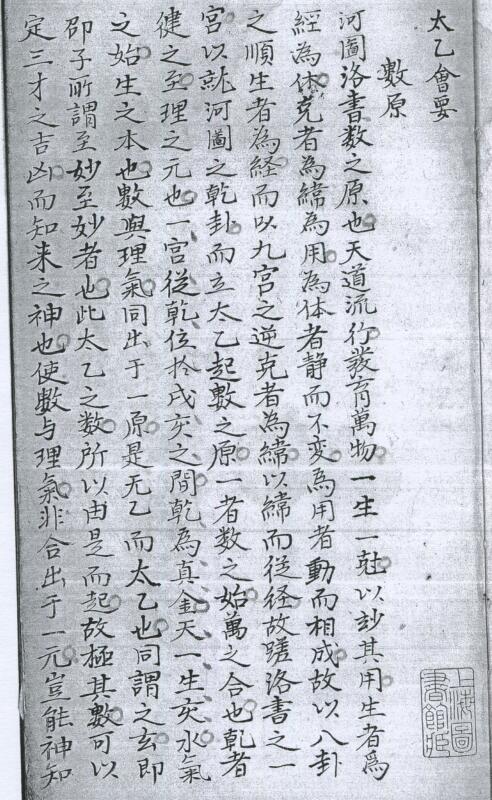 太乙會要
數原
河圖洛書数之原也天道流行發育萬物一生一尅以妙其用生者爲
經為体克者為緯為用為体者静而不变為用者動而相成故以八卦
之順生者為経而以九宮之逆克者為緯以緯而從経故蹉洛書之一
宮以就河圖之乾卦而立太乙起數之原一者数之始萬之合也乹者
健之至理之元也一宮從乾位於戌亥之間乾為真金天一生亥水氣
之始生之本也數與理氣同出于一原是无乙而太乙也同謂之玄即
邵子所謂至妙至妙者也此太乙之数所以由是而起故極其數可以
定三才之吉凶而知来之神也使數与理氣非合出于一元豈能神知
上海圖書館藏